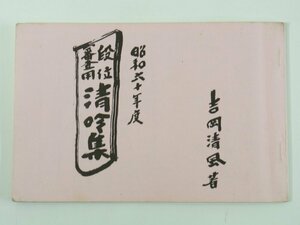 昭和六十年度
段位
審査用
清吟集
吉岡清風著